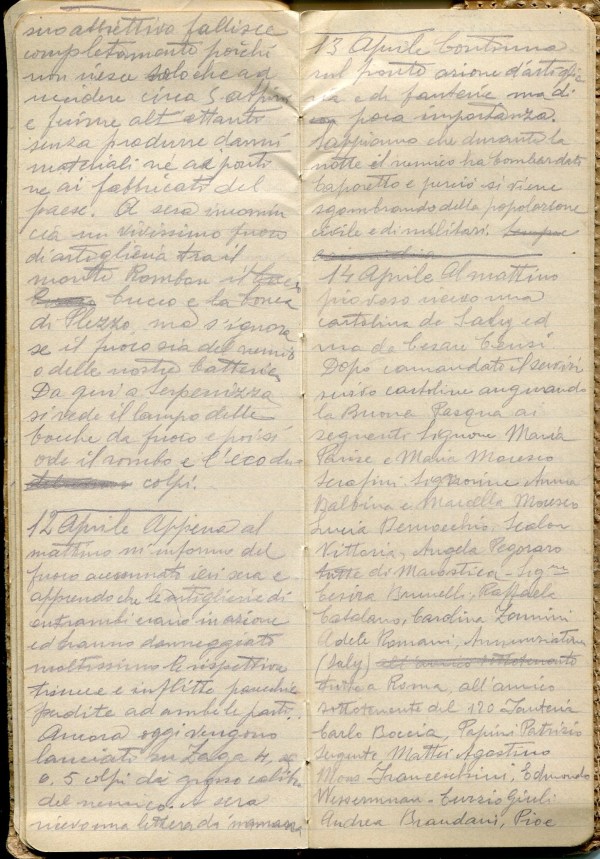 suo obbiettivo fallisce
completamente poichè
non riesce solo che ad
uccidere circa 5 alpini
e ferirne altrettanti
senza produrre danni
materiali nè ai ponti
ne ai fabbricati del
paese. A sera incomin
cia un vivissimo fuoco
d'artiglieria tra il
monte Rombon il
Cucco e la conca
di Plezzo, ma s'ignora
se il fuoco sia del nemi
o delle nostre batterie
Da qui a Serpenizza
si vede il lampo delle
bocche da fuoco e poi si
ode il rombo e l'eco dei
colpi.
12 Aprile Appena al
mattino m'informo del
fuoco accennato ieri sera e
apprendo che le artiglierie di
entrambi erano in azione
ed hanno danneggiato
moltissimo le rispettive
trincee e inflitte parecchie
perdite ad ambo le parti.
Ancora oggi vengono
lanciati su Zaga 4, o
o, 5 colpi di grosso calibro
del nemico. A sera
ricevo una lettera di mamma
13 Aprile Continua
sul fronte azione d'artiglie
ria e di fanterie ma di
poca importanza.
Sappiamo che durante la
notte il nemico ha bombardato
Caporetto e perciò si viene
sgombrando della popolazione
civile e di militari.
14 Aprile Al mattino
piovoso ricevo una
cartolina da Saly ed
una da Cesare Censi
Dopo comandato il servizi
scrivo cartoline augurando
la Buona Pasqua ai
seguenti Signore Maria
Parise e Maria Moresco
Serafini Signorine Anna
Balbina e Marcella Moresco
Lucia Bernocchio, Scalon
Vittoria, Angela Pegoraro
tutte di Marostica - Sig.ne
Cesira Brunelli, Raffaela
Catalano, Carolina Zannini
Adele Romani, Annunziatina
(Saly) all'amico sottotenente
tutte a Roma, all'amico
sottotenente del 120 Fanteria
Carlo Boccia, Papini Patrizio
Sergente Mattei Agostino
Mons Franceschini, Edmondo
Wesserman - Curzio Giuli
Andrea Brandani, Pioc